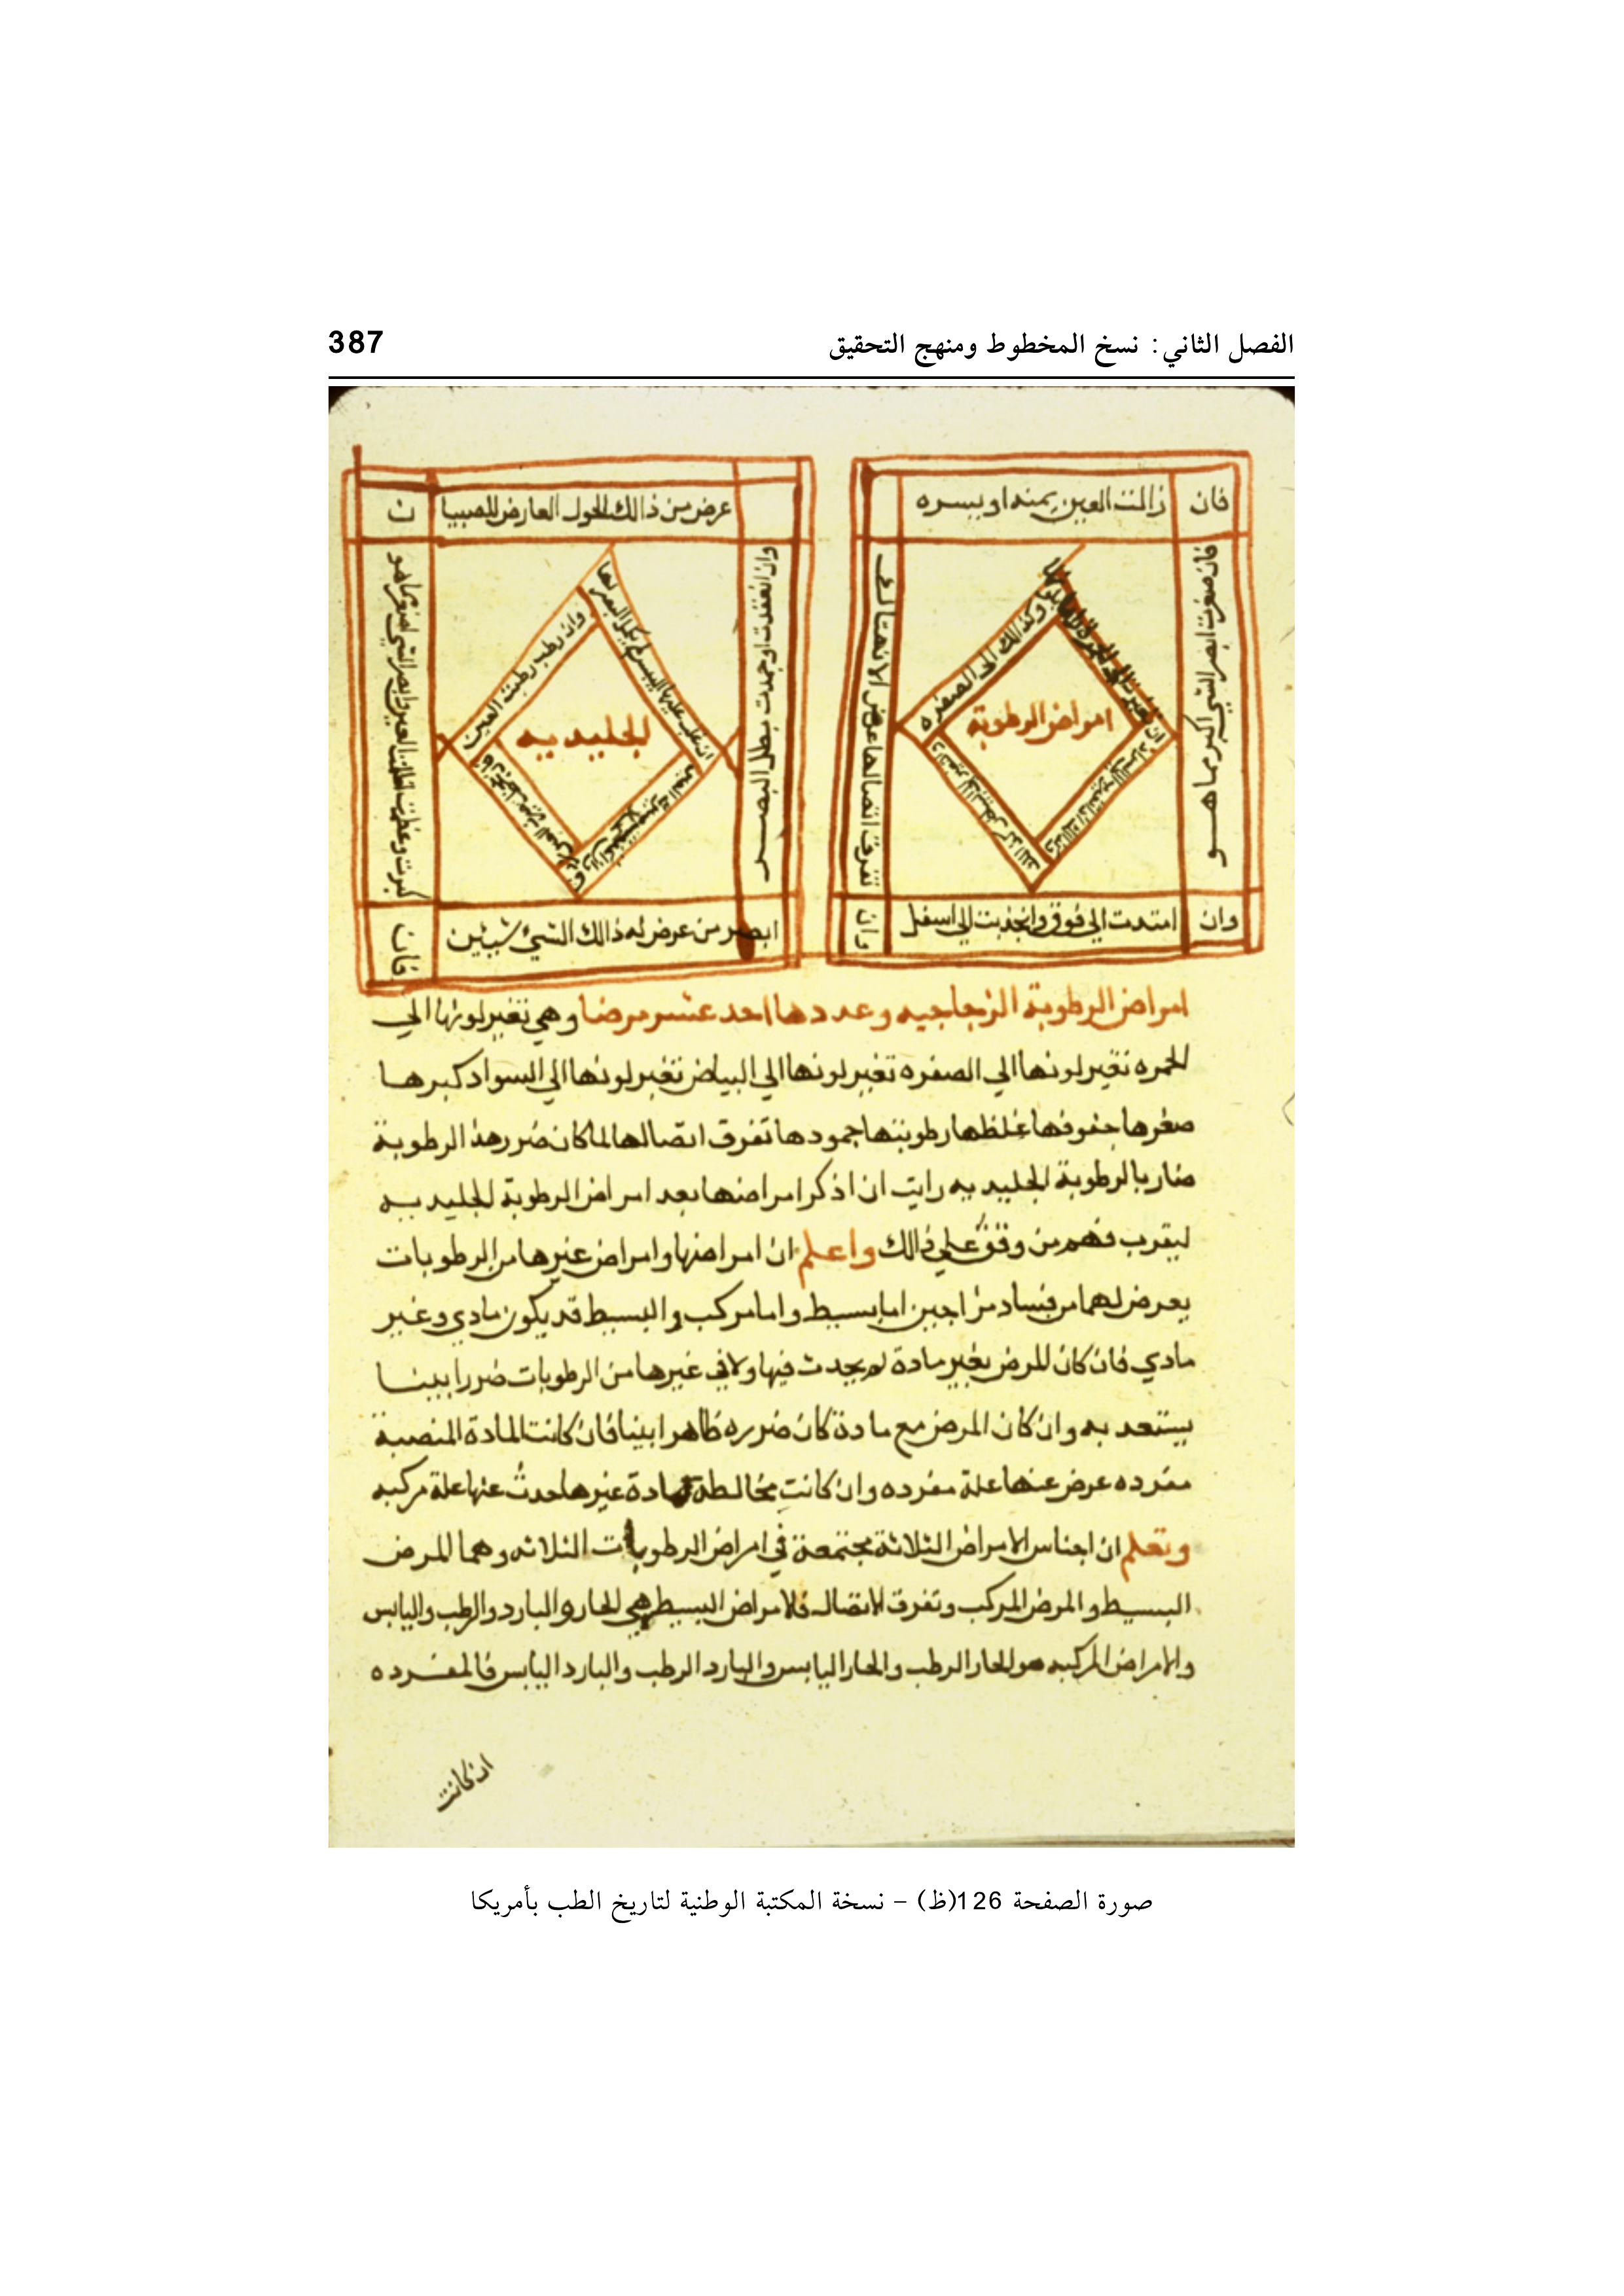 الفصل الثاني: نسخ المخطوط ومنهج التحقيق
387
فان
زالت العين يمنه او يسره
فان صغرت ابصر الشي اكبر مما هـــو
وان
امتدت الي فوق وانجذبت الي اسفل
وان
تفرق اتصالها عرض الانهتاك
وكذالك الى الصفره
امراض الرطوبة
عرض من ذالك الحول العارض للصبيا
ن
وان انعقدت او جمدت بطل البصـــر
ابصر من عرض له ذالك الشيء شيئين
فان
كبرت وعظمت
العين وابصر الشي اصغر مما هو
وان رطب رطبت العين
الجليديه
امراض الرطوبة الزجاجيه وعددها احد عشر مرضا وهي تغير لونها الي
الحمره تغير لونها الي الصفره تغير لونها الي البياض تغير لونها الي السواد كبرها
صغرها جفوفها غلظها رطوبتها جمودها تفرق اتصالها لما كان ضرر هذه الرطوبة
ضار بالرطوبة الجليديه رايت ان اذكر امراضها بعد امراض الرطوبة الجليديه
ليقرب فهم من وقف علي ذالك واعلم ان امراضها وامراض غيرها من الرطوبات
يعرض لهما من فساد مزاجين اما بسيط واما مركب والبسيط قد يكون مادي وغير
مادي فان كان المرض بغير مادة لم يحدث فيها ولا في غيرها من الرطوبات ضررا بينـا
يستعد به وان كان المرض مع مادة كان ضرره ظاهرا بينا فان كانت المادة المنصبة
مفرده عرض عنها علة مفرده وان كانت مخالطة لمادة غيرها حدث عنها علة مركبه
وتعلم ان اجناس الامراض الثلاثة مجتمعة في امراض الرطوبات الثلاثه وهما المرض
البسيط والمرض المركب وتفرق الاتصال فلامراض البسيط هي الحار والبارد والرطب واليابس
والامراض المركبه هو الحار الرطب والحار اليابس والبارد الرطب والبارد اليابس فالمفـرده
ان كانت
صورة الصفحة 126(ظ) – نسخة المكتبة الوطنية لتاريخ الطب بأمريكا